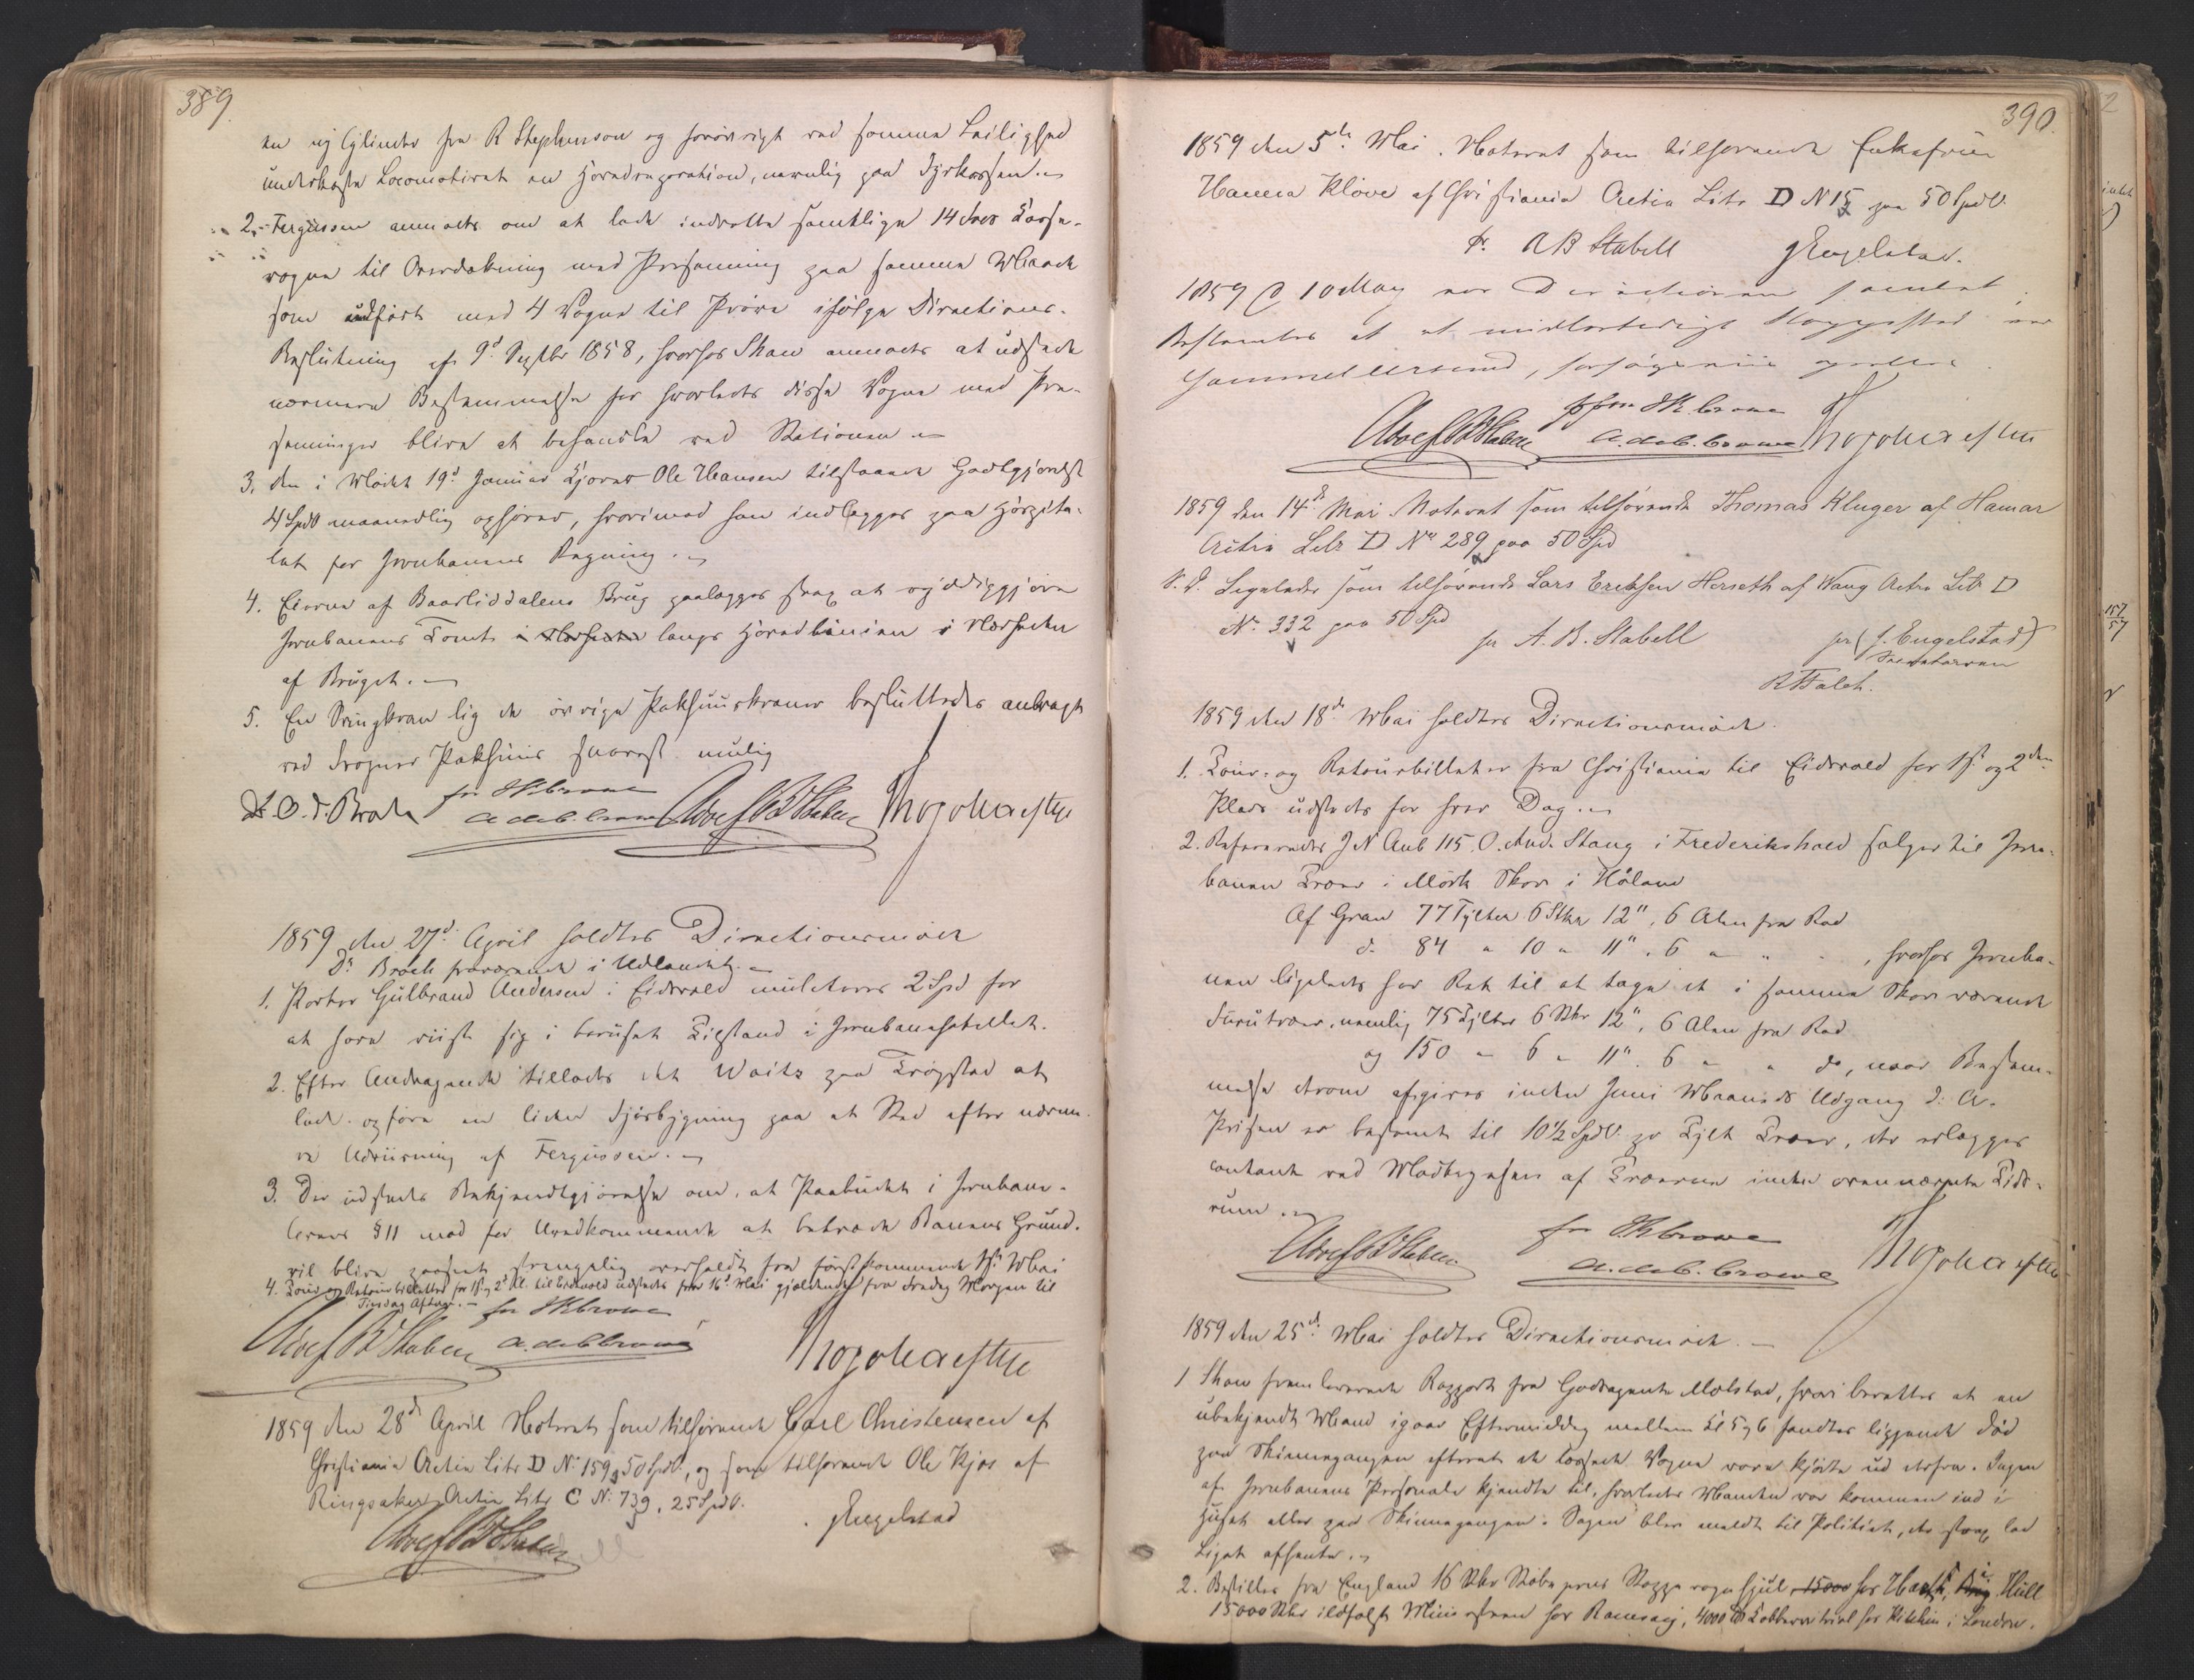 389.
en ny Cylinder fra R Stephenson og forøvrigt ved samme Leilighed
underkaste Locomotivet en Hovedreparation, navnlig paa Fyrkassen.
2. Fergusson anmodes om at lade indrette samtlige 14 Lasse-
vogne til Overdækning med Presenning paa samme Maade
som udført med 4 Vogne til Prøve ifølge Directions-
Beslutning af 9d Septbr 1858, hvorhos Shaw anmodes at udstede
nærmere Bestemmelse for hvorledes disse Vogne med Pre-
senninger blive at behandle ved Stationen
3. den i Mødet 19d Januar Kjører Ole Hansen tilstaaede Godtgjørelse
4 Spd maanedlig ophører, hvorimod han indlægges paa Hospita-
let for Jernbanens Regning.
4. Eierne af Baarliddalens Brug paalægges strax at ryddiggjøre
Jernbanens Tomt langs Hovedlinien i Nærheden
af Bruget.
5. En Svingkran lig de øvrige Pakhuuskraner besluttedes anbragt
ved Frogner Pakhuus snarest mulig
O. J. Broch for JR Crowe
A. de C. Crowe Adolf B Stabell Thojohannesen
1859 den 27d April holdtes Directionsmøde
Dr Broch fraværende i Udlandet.
1. Portør Gulbrand Andersen i Eidsvold mulcteres 2 Spd for
at have viist sig i beruset Tilstand i Jernbanehotellet.
2. Efter Andragende tillades det Waitz paa Trøgstad at
lade opføre en liden Sjøbygning paa et Sted efter nærme-
re Udviisning af Fergusson.
3. Der udstedes Bekjendtgjørelse om, at Paabudet i Jernbane-
lovens § 11 mod for Uvedkommende at betræde Banens Grund,
vil blive paaseet strengelig overholdt fra førstkommende 1ste Mai
4. Tour og Retourbilletter for 1ste og 2d Kl. til Eidsvold udstedes fra 16d Mai gjældende fra Lørdag Morgen til
Tirsdag Aften. for JR Crowe
Adolf B Stabell A. de C Crowe
1859 den 28d April Noteret som tilhørende Carl Christensen af
Christiania Actie Litr D No 159 50 Spdl, og som tilhørende Ole Kjos af
Ringsaker Actie Litr C No 739, 25 Spdl.
Adolf B Stabell JEngelstad
390.
1859 den 5te Mai. Noteret som tilhørende Enkefrue
Hanna Klöve af Christiania Actie Litr D N 15 paa 50 Spdl
fr. A B Stabell JEngelstad.
1859 d 10 May var Directionen samlet.
Bestemtes at et midlertidigt Stoppested ved
Gammel Ursund, forsøgsviis oprettes.
Adolf B Stabell for JR Crowe
A. de C. Crowe
1859 den 14de Mai Noteret som tilhørende Thomas Kluger af Hamar
Actie Litr D No 289 paa 50 Spd
S. D. Ligeledes som tilhørende Lars Eriksen Herseth af Vang Actie Litr D
No 332 paa 50 Spd
for A. B. Stabell for (J. Engelstad)
Secretairen
R Falch.
1859 den 18de Mai holdtes Directionsmøde.
1. Tour- og Retourbilletter fra Christiania til Eidsvold for 1ste og 2den
Klasse udstedes for hver Dag.
2. Refereredes J N Aub 115. O. And. Stang i Frederikshald sælger til Jern-
banen Træer i Mørk Skov i Höland
Af Gran 77 Tylter 6 Stkr 12", 6 Alen fra Rod
d. 84 " 10 " 11", 6 " " ", hvorhos Jernba-
nen ligeledes har Ret til at tage de i samme Skov værende
Furutræer, nemlig 75 Tylter 6 Stkr 12", 6 Alen fra Rod
og 150 " 6 " 11". 6 " " do, naar Bestem-
melse derom afgives inden Juni Maaneds Udgang d. A.
Prisen er bestemt til 10½ Spdl pr Tylt Træer, der erlægges
contant ved Modtagelsen af Træerne inden ovennævnte Tids-
rum.
Adolf B Stabell for JR Crowe
A. de C. Crowe
1859 den 25d Mai holdtes Directionsmøde.
1 Shaw fremleverede Rapport fra Godsagent Molstad, hvori berettes at en
ubekjendt Mand igaar Eftermiddag mellem Kl 5 og 6 fandtes liggende død
paa Skinnegangen efterat de lossede Vogne vare kjørte ud derfra. Ingen
af Jernbanens Personale kjendte til, hvorledes Manden var kommen ind i
Huset eller paa Skinnegangen. Sagen blev meldt til Politiet, der strax lod
Liget afhente.
2. Bestilles fra England 16 Stkr Støbe Vognhjul 15000 hos i Hull
15000 Stkr ildfaste Muursteen hos Ramsay, 4000 Kobber hos Kitchin i London.